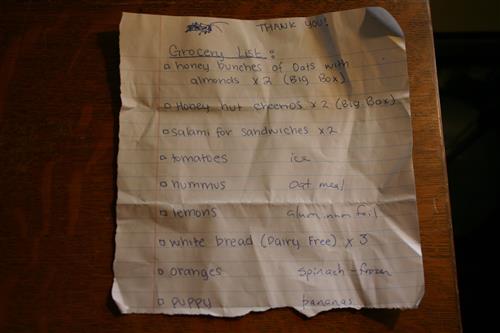 THANK YOU!
Grocery List:
honey bunches of oats with
almonds x 2 (Big Box)
Honey nut cheerios x 2 (Big Box)
salami for sandwiches x 2
tomatoes ice
hummus oat meal
lemons aluminum foil
white bread (Dairy Free) x 3
oranges spinach - frozen
puppy bananas